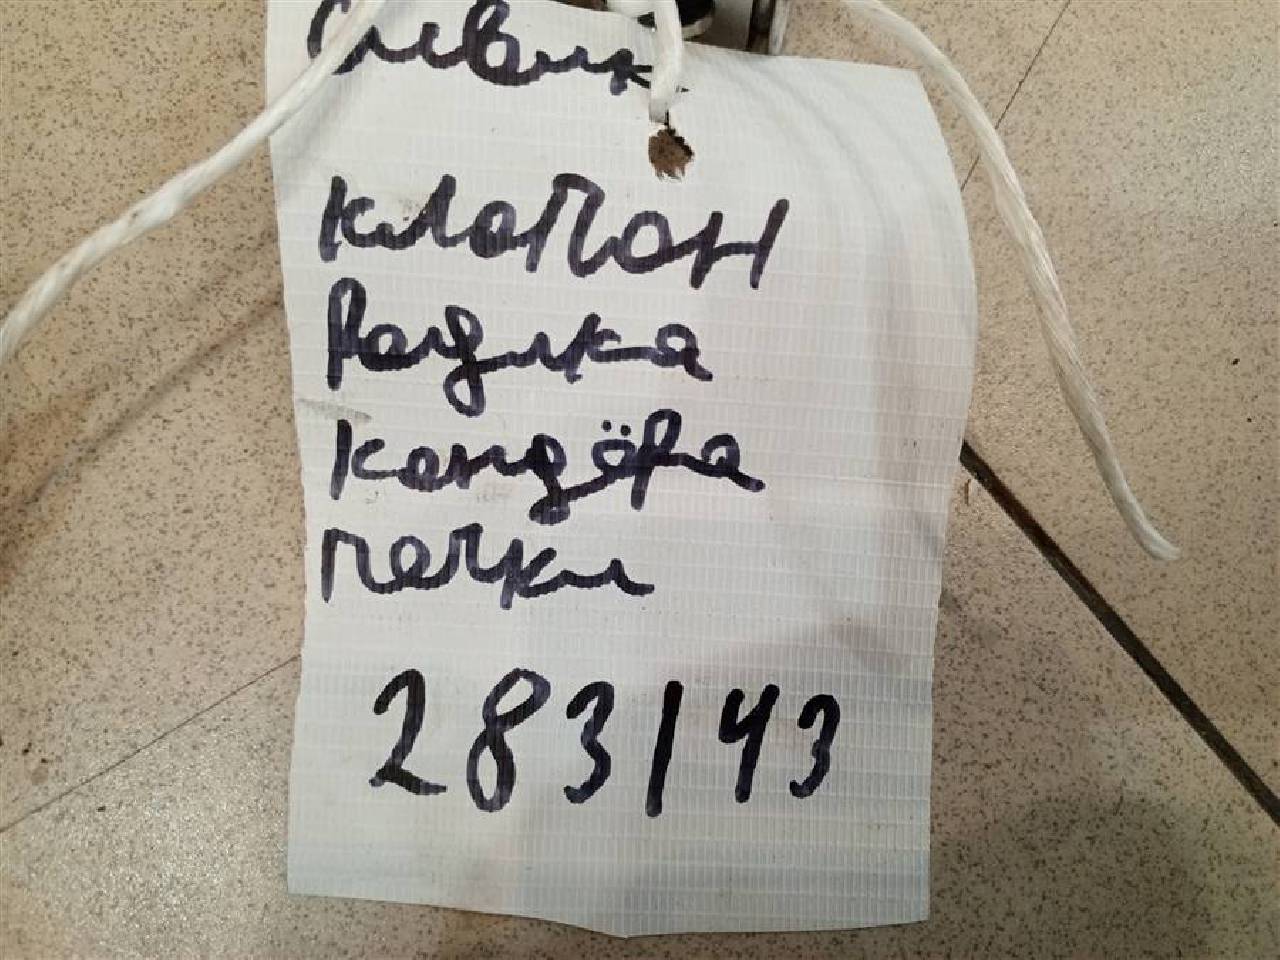 Сивик
клапан
Радика
кондёра
печки
283/43